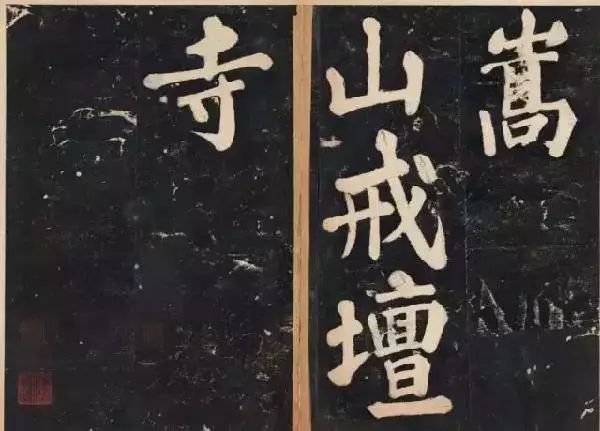 嵩
山戒壇
寺